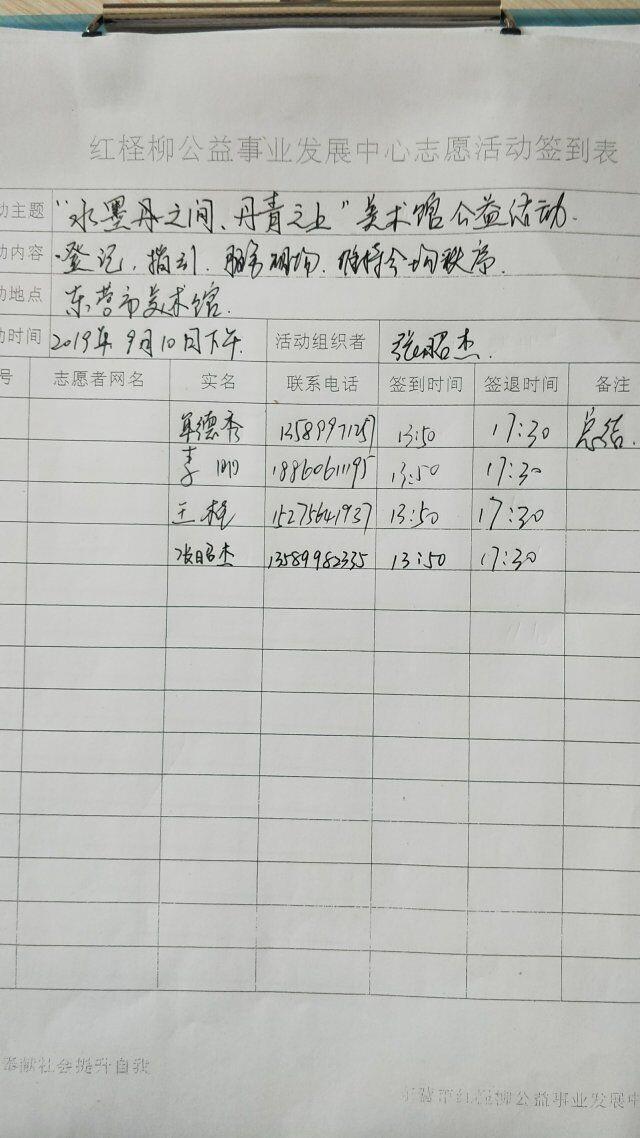 红柽柳公益事业发展中心志愿活动签到表
动主题 "水墨丹之间、丹青之上"美术馆公益活动.
动内容 登记, 指引. 服务现场. 维持会场秩序.
动地点 东营市美术馆.
动时间 2019年9月10日下午. 活动组织者 张昭杰.
号 志愿者网名 实名 联系电话 签到时间 签退时间 备注
单德秀 13589971257 13:50 17:30 总结.
李 18860611195 13:50 17:30
王 15275641937 13:50 17:30
张昭杰 13589982335 13:50 17:30
奉献社会提升自我
东营市红柽柳公益事业发展中